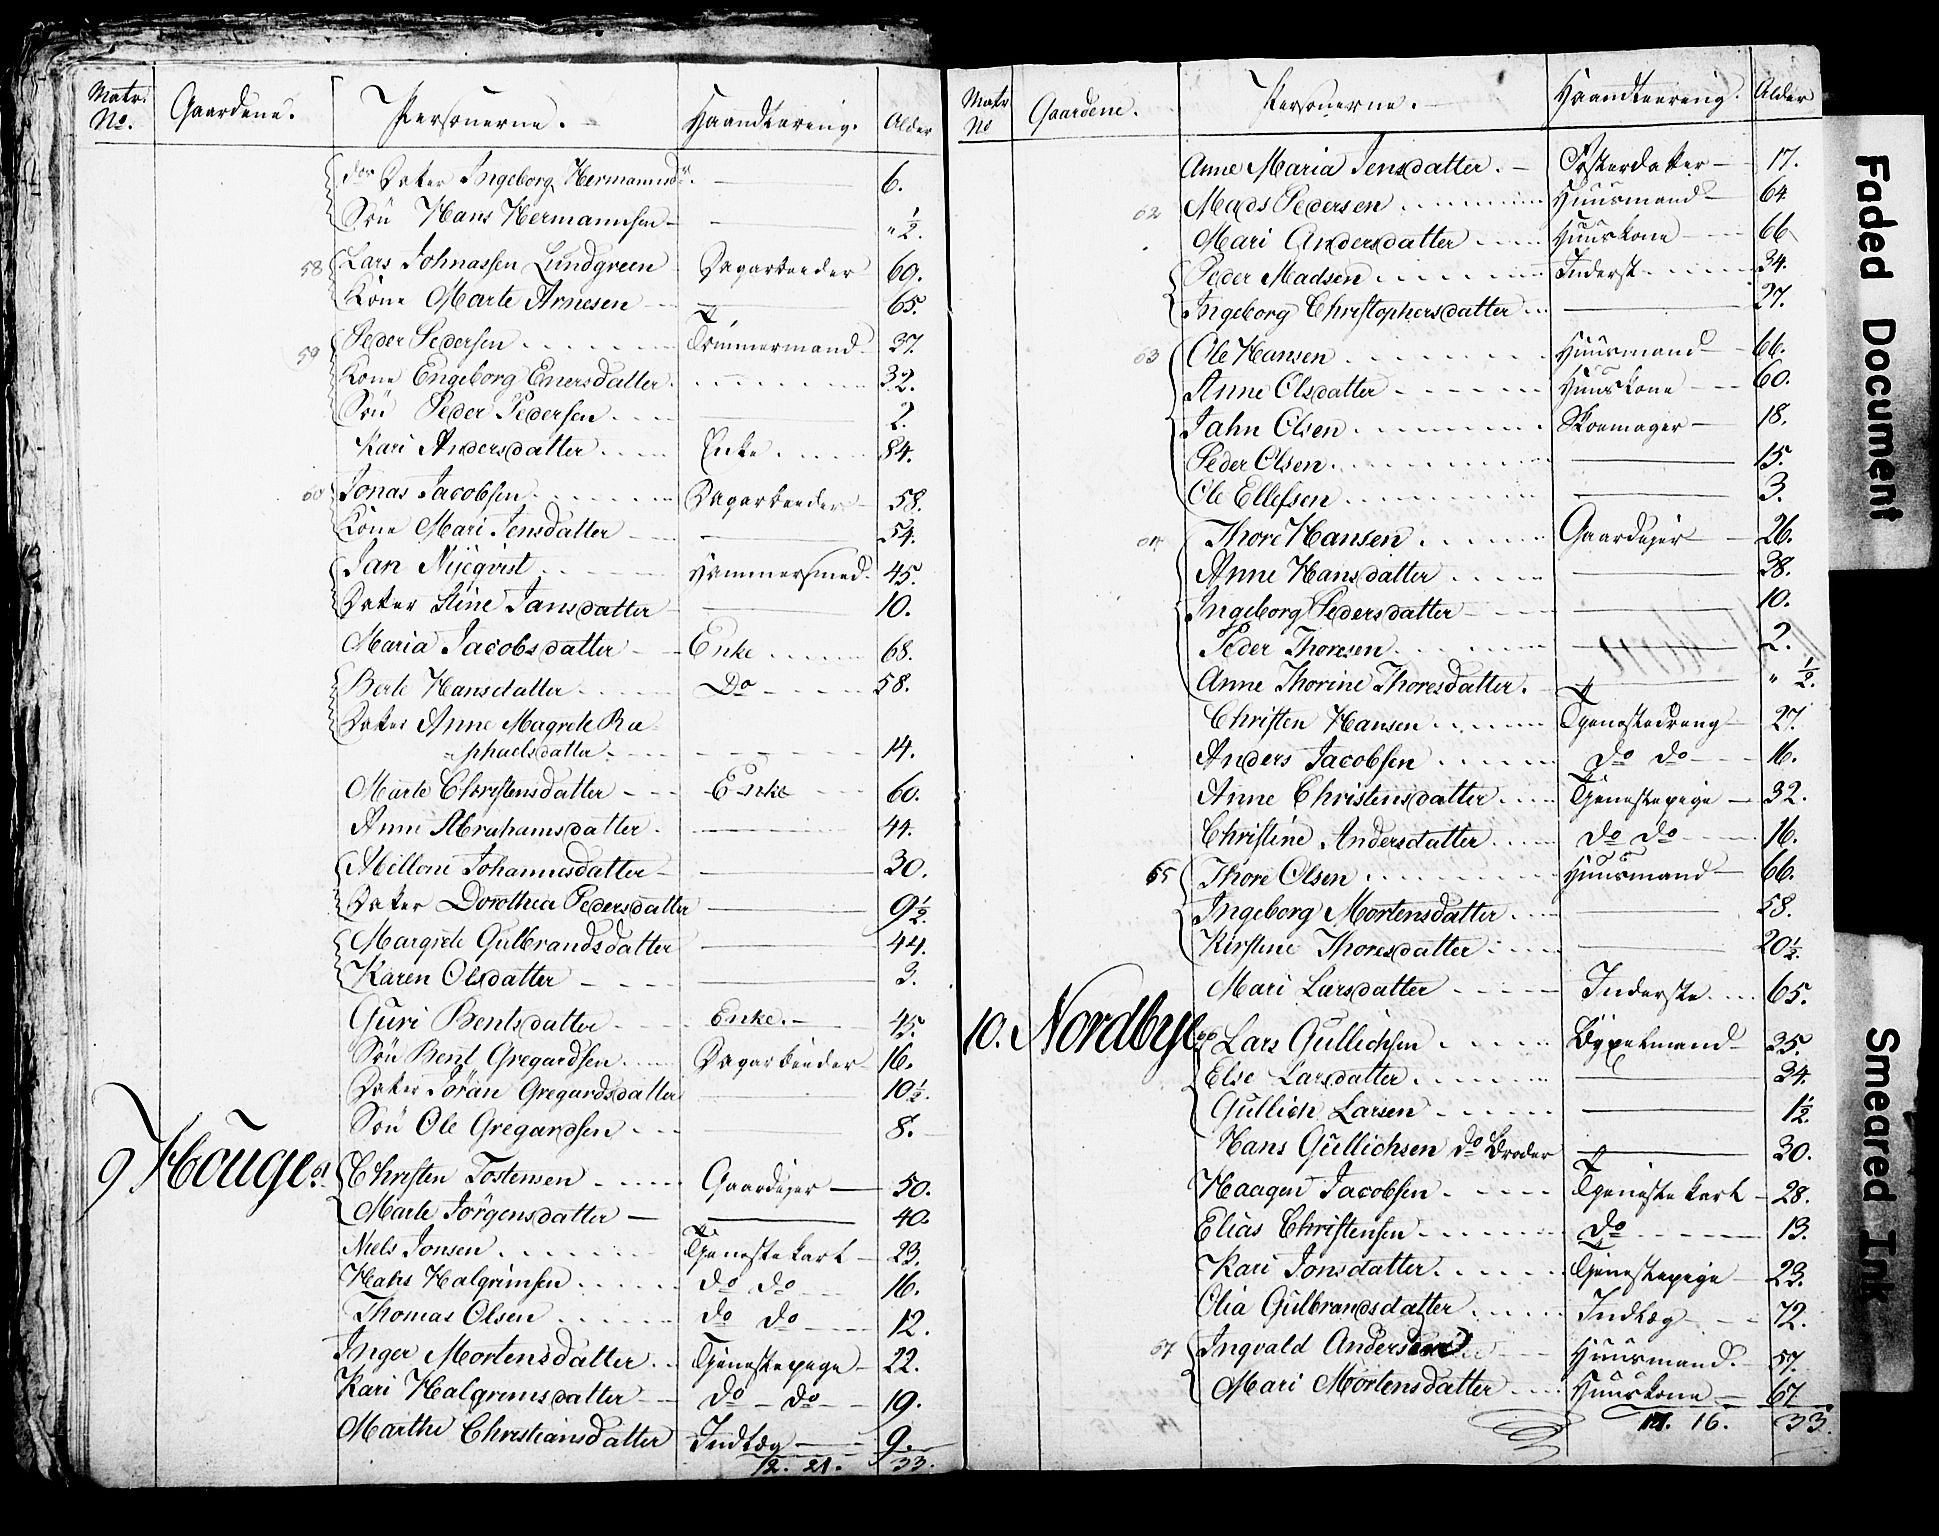 Matr. No. Gaardene. Personerne. Haandteering. Alder
dos Datter Ingeborg Hermannsdr. 6.
Søn Hans Hermannsen " ½.
58 Lars Johnassen Lundgreen Dagarbeider 60.
Kone Marte Arnesen 65.
59 Peder Pedersen Tømmermand 37.
Kone Engeborg Enersdatter 32.
Søn Peder Pedersen 2.
Kari Andersdatter Enke 84.
60 Jonas Jacobsen Dagarbeider 58.
Kone Mari Jensdatter 54.
Jan Nyeqvist Hammersmed 45.
Datter Stine Jansdatter 10.
Maria Jacobsdatter Enke 68.
Berte Hansdatter Do 58.
Datter Anne Magrete Ra-
phaelsdatter 14.
Marte Christensdatter Enke 60.
Anne Abrahamsdatter 44.
Mallone Johannesdatter 30.
Datter Dorothea Pedersdatter 9½.
Margrete Gulbrandsdatter 44.
Karen Olsdatter 3.
Guri Bentsdatter Enke. 45.
Søn Bent Gregardsen Dagarbeider 16.
Datter Jöran Gregardsdatter 10½.
Søn Ole Gregardsen 8.
9 Houge 61 Christen Tostensen Gaardejer 50.
Marte Jörgensdatter 40.
Niels Jonsen Tjenestekarl 23.
Hans Halgrimsen do do 16.
Thomas Olsen do do 12.
Inger Mortensdatter Tjenestepege 22.
Kari Halgrimsdatter do do 19.
Marthe Christiansdatter Indlæg 9.
12. 21. 33.
Matr No Gaardene. Personerne. Haandteering. Alder
Anne Maria Jensdatter. Fosterdatter 17.
62 Mads Pedersen Huusmand 64
Mari Andersdatter Huuskone 66
Peder Madsen Inderst 34.
Ingeborg Christophersdatter 27.
63 Ole Hansen Huusmand 66.
Anne Olsdatter Huuskone 60.
Jahn Olsen Skoemager 18.
Peder Olsen 15.
Ole Ellefsen 3.
64 Thore Hansen Gaardejer 26.
Anne Hansdatter 38.
Ingeborg Pedersdatter 10.
Peder Thoresen 2.
Anne Thorine Thoresdatter. " ½.
Christen Hansen Tjenestedreng 27.
Anders Jacobsen do do 16.
Anne Christensdatter Tjenestepige 32.
Christine Andersdatter do do 16.
65 Thore Olsen Huusmand 66.
Ingeborg Mortensdatter 58.
Kirstine Thoresdatter 20½.
Mari Larsdatter Inderste 65.
10. Nordbye 66 Lars Gullichsen Bygselmand 35.
Else Larsdatter 34.
Gullich Larsen 1½.
Hans Gullichsen do Broder 30.
Haagen Jacobsen Tjenestekarl 28.
Elias Christensen do 13.
Kari Jonsdatter Tjenestepige 23.
Olia Gulbrandsdatter Indlæg 72.
67 Ingvald Andersen Huusmand. 57.
Mari Mortensdatter Huuskone 67.
16. 33.
Faded Document
Smeared Ink